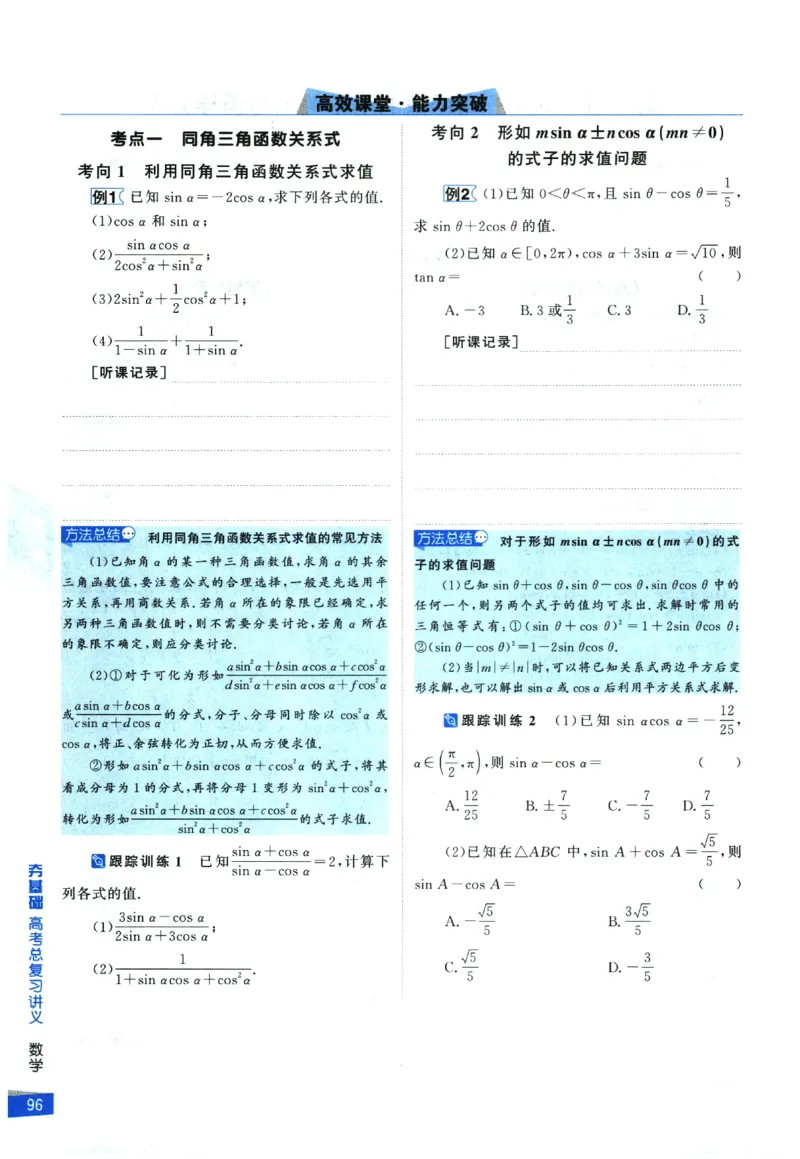 高效课堂·能力突破
考点一 同角三角函数关系式
考向 1 利用同角三角函数关系式求值
例1 已知 sin α=-2cos α,求下列各式的值.
(1)cos α 和 sin α;
(2)$\frac{\sin α\cos α}{2\cos^2α+\sin^2α}$;
(3)2sin²α+$\frac{1}{2}$cos²α+1;
(4)$\frac{1}{1-\sin α}$+$\frac{1}{1+\sin α}$.
[听课记录]
方法总结 利用同角三角函数关系式求值的常见方法
(1)已知角 α 的某一种三角函数值,求角 α 的其余
三角函数值,要注意公式的合理选择,一般是先选用平
方关系,再用商数关系.若角 α 所在的象限已经确定,求
另两种三角函数值时,则不需要分类讨论,若角 α 所在
的象限不确定,则应分类讨论.
(2)①对于可化为形如$\frac{a\sin^2α+b\sin α\cos α+c\cos^2α}{d\sin^2α+e\sin α\cos α+f\cos^2α}$
或$\frac{a\sin α+b\cos α}{c\sin α+d\cos α}$的分式,分子、分母同时除以 cos²α 或
cos α,将正、余弦转化为正切,从而方便求值.
②形如 asin²α+bsin αcos α+ccos²α 的式子,将其
看成分母为 1 的分式,再将分母 1 变形为 sin²α+cos²α,
转化为形如$\frac{a\sin^2α+b\sin α\cos α+c\cos^2α}{\sin^2α+\cos^2α}$的式子求值.
跟踪训练 1 已知$\frac{\sin α+\cos α}{\sin α-\cos α}$=2,计算下
列各式的值.
(1)$\frac{3\sin α-\cos α}{2\sin α+3\cos α}$;
(2)$\frac{1}{1+\sin α\cos α+\cos^2α}$.
考向 2 形如 msin α±ncos α(mn≠0)
的式子的求值问题
例2 (1)已知 0<θ<π,且 sin θ-cos θ=$\frac{1}{5}$,
求 sin θ+2cos θ 的值.
(2)已知 α∈[0,2π),cos α+3sin α=$\sqrt{10}$,则
tan α= ( )
A.-3 B.3 或$\frac{1}{3}$ C.3 D.$\frac{1}{3}$
[听课记录]
方法总结 对于形如 msin α±ncos α(mn≠0)的式
子的求值问题
(1)已知 sin θ+cos θ,sin θ-cos θ,sin θcos θ 中的
任何一个,则另两个式子的值均可求出.求解时常用的
三角恒等式有:①(sin θ+cos θ)²=1+2sin θcos θ;
②(sin θ-cos θ)²=1-2sin θcos θ.
(2)当|m|≠|n|时,可以将已知关系式两边平方后变
形求解,也可以解出 sin α 或 cos α 后利用平方关系式求解.
跟踪训练 2 (1)已知 sin αcos α=-$\frac{12}{25}$,
α∈($\frac{π}{2}$,π),则 sin α-cos α= ( )
A.$\frac{12}{25}$ B.±$\frac{7}{5}$ C.-$\frac{7}{5}$ D.$\frac{7}{5}$
(2)已知在△ABC 中,sin A+cos A=$\frac{\sqrt{5}}{5}$,则
sin A-cos A= ( )
A.-$\frac{\sqrt{5}}{5}$ B.$\frac{3\sqrt{5}}{5}$
C.$\frac{\sqrt{5}}{5}$ D.-$\frac{3}{5}$
夯基础 高考总复习讲义 数学
96